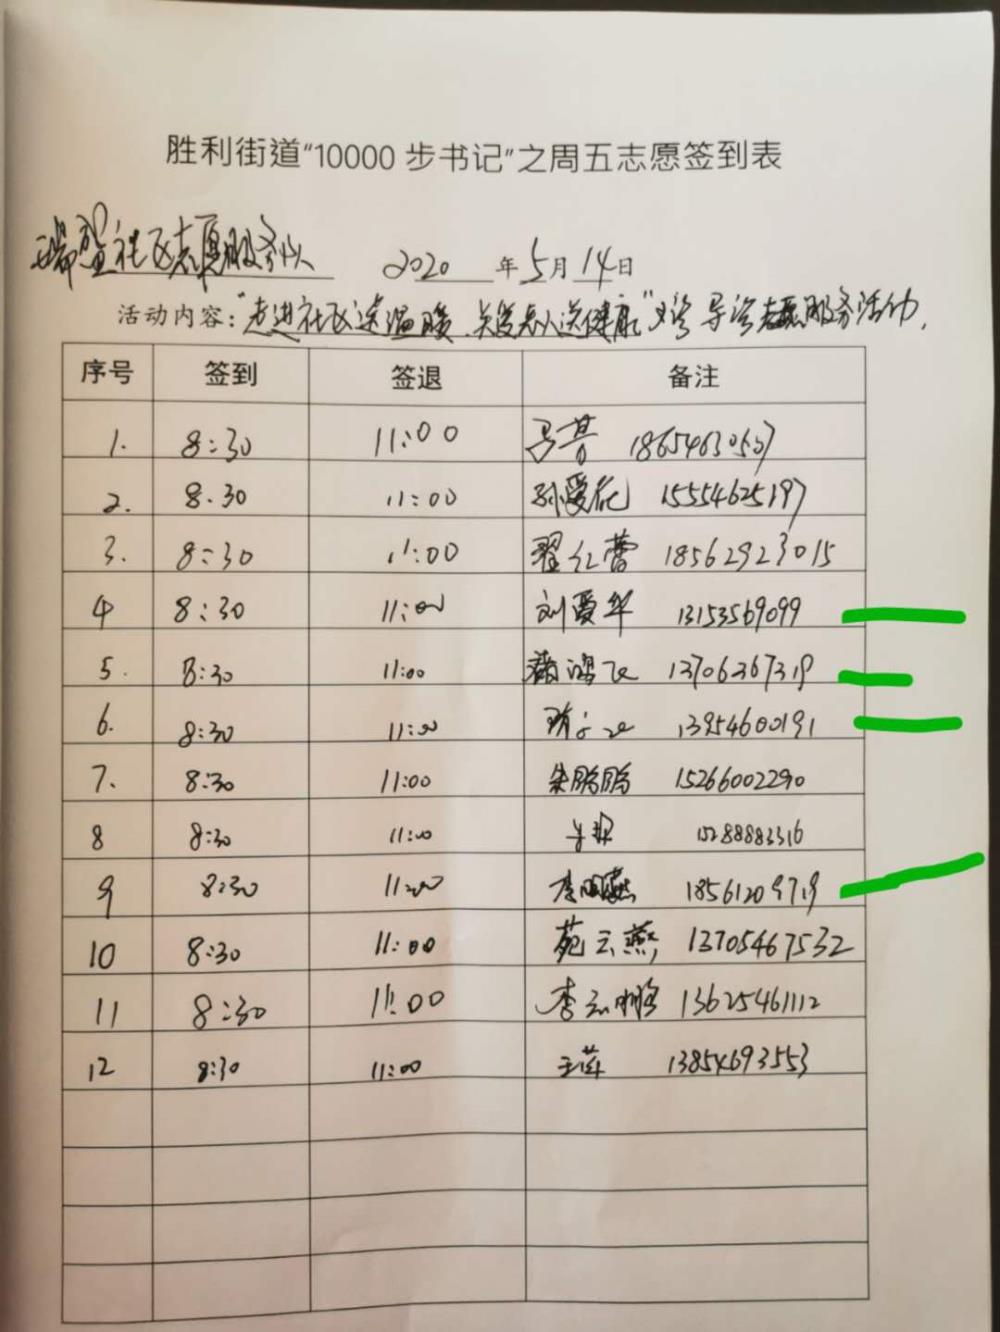 胜利街道“10000 步书记”之周五志愿签到表
瑞盛社区志愿服务队 2020 年 5 月 14 日
活动内容：“走进社区送温暖、关爱老人送健康”义诊 导诊志愿服务活动.
序号 签到 签退 备注
1. 8:30 11:00 18654630507
2. 8.30 11:00 孙爱花 15554625197
3. 8:30 11:00 翟红蕾 18562923015
4 8:30 11:00 刘爱华 13153569099
5. 8:30 11:00 13706367319
6. 8:30 11:00 13954600191
7. 8:30 11:00 朱鹏鹏 15266002290
8 8:30 11:00 15288883316
9 8:30 11:00 18561209719
10 8:30 11:00 苑云燕 13705467532
11 8:30 11:00 13625461112
12 8:30 11:00 王萍 13854693553